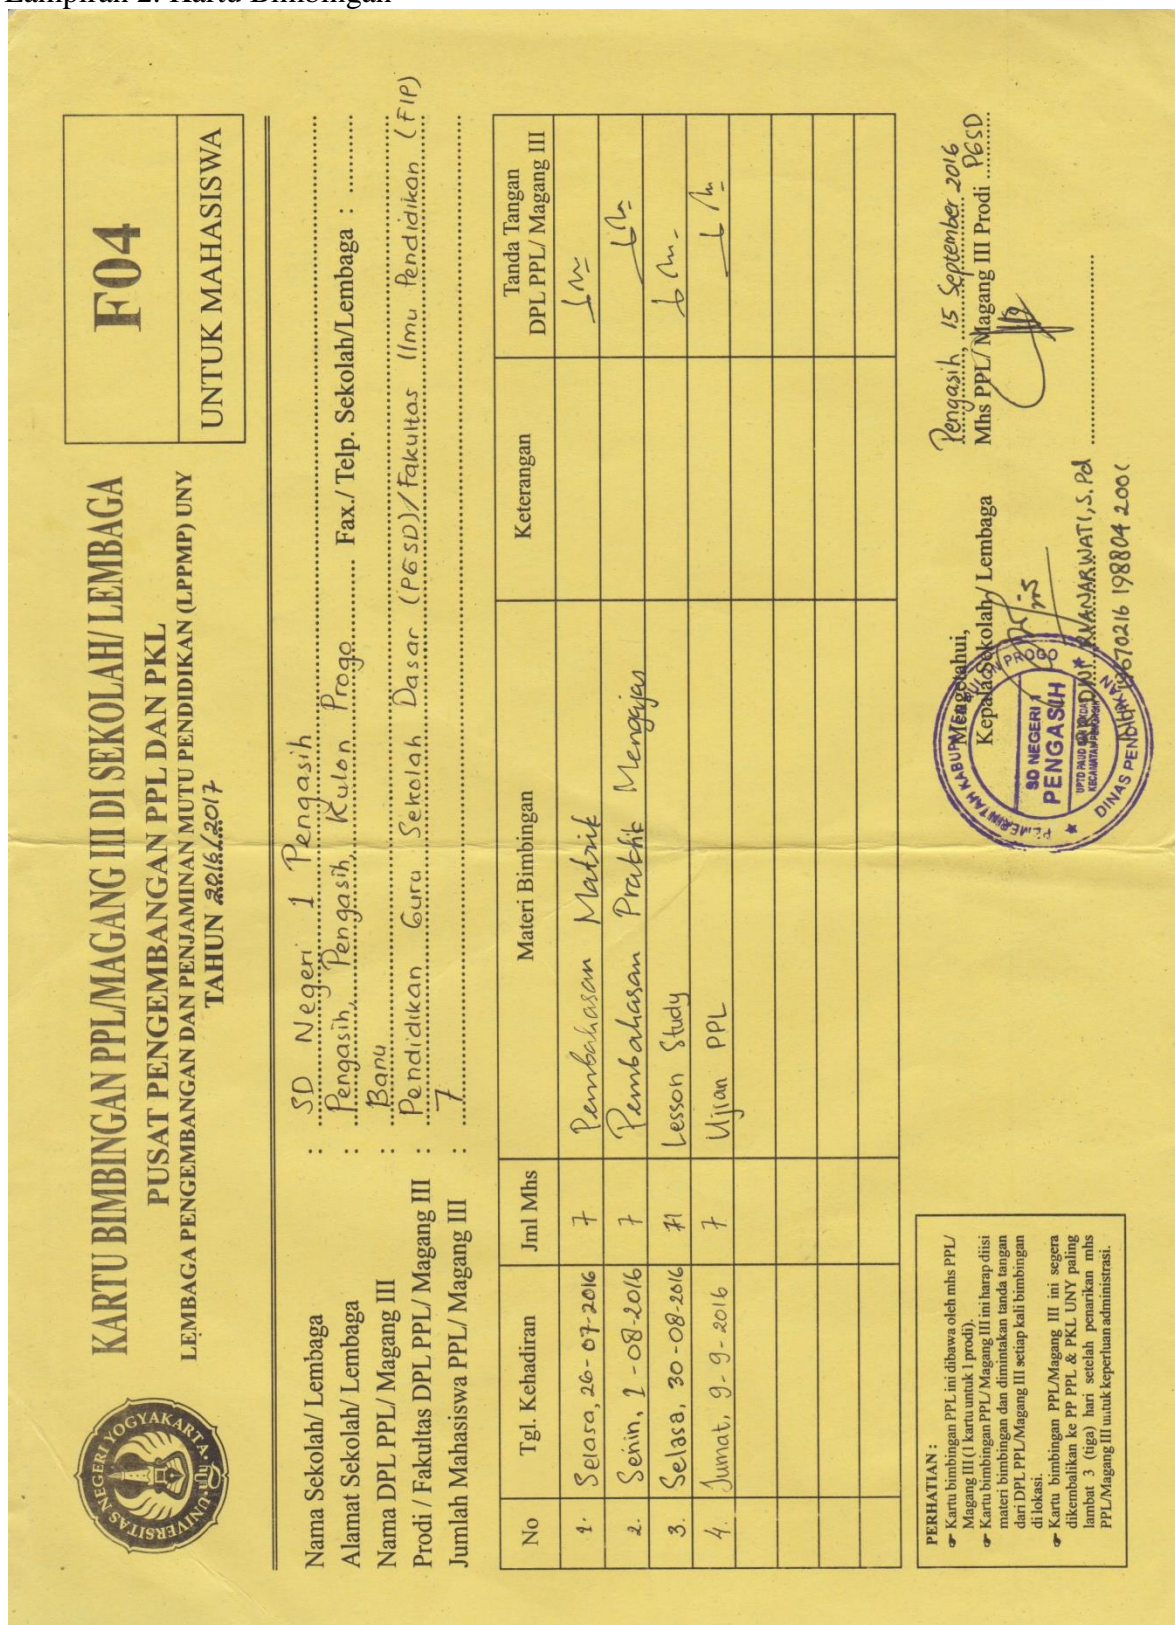 Lampiran 2. Kartu Bimbingan
KARTU BIMBINGAN PPL/MAGANG III DI SEKOLAH/ LEMBAGA
PUSAT PENGEMBANGAN PPL DAN PKL
LEMBAGA PENGEMBANGAN DAN PENJAMINAN MUTU PENDIDIKAN (LPPMP) UNY
TAHUN 2016/2017
F04
UNTUK MAHASISWA
UNIVERSITAS NEGERI YOGYAKARTA
Nama Sekolah/ Lembaga : SD Negeri 1 Pengasih
Alamat Sekolah/ Lembaga : Pengasih, Pengasih, Kulon Progo Fax./ Telp. Sekolah/Lembaga :
Nama DPL PPL/ Magang III : Banu
Prodi / Fakultas DPL PPL/ Magang III : Pendidikan Guru Sekolah Dasar (PGSD)/ Fakultas Ilmu Pendidikan (FIP)
Jumlah Mahasiswa PPL/ Magang III : 7
No Tgl. Kehadiran Jml Mhs Materi Bimbingan Keterangan Tanda Tangan DPL PPL/ Magang III
1. Selasa, 26-07-2016 7 Pembahasan Matrik
2. Senin, 1-08-2016 7 Pembahasan Praktik Mengajar
3. Selasa, 30-08-2016 7 Lesson Study
4. Jumat, 9-9-2016 7 Ujian PPL
PERHATIAN :
☞ Kartu bimbingan PPL ini dibawa oleh mhs PPL/
Magang III (1 kartu untuk 1 prodi).
☞ Kartu bimbingan PPL/ Magang III ini harap diisi
materi bimbingan dan dimintakan tanda tangan
dari DPL PPL/Magang III setiap kali bimbingan
di lokasi.
☞ Kartu bimbingan PPL/Magang III ini segera
dikembalikan ke PP PPL & PKL UNY paling
lambat 3 (tiga) hari setelah penarikan mhs
PPL/Magang III untuk keperluan administrasi.
Mengetahui,
Kepala Sekolah/ Lembaga
PEMERINTAH KABUPATEN KULON PROGO
SD NEGERI 1
PENGASIH
KECAMATAN PENGASIH
DINAS PENDIDIKAN
S.Pd
NIP 19670216 198804 2001
Pengasih, 15 September 2016
Mhs PPL/ Magang III Prodi PGSD